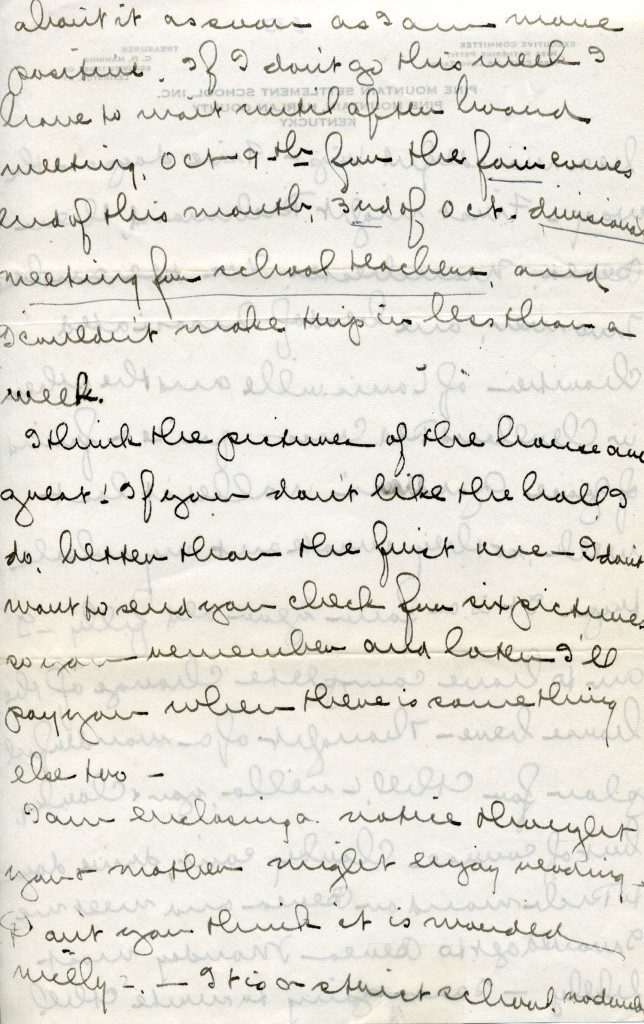 about it as soon as I am more
positive. If I don't go this week I
have to wait until after board
meeting, Oct 9th for the fair comes
end of this month, 3rd of Oct. divisional
meeting for school teachers, and
I couldn't make trip in less than a
week.
I think the pictures of the house are
great! If you don't like the hall I
do, better than the first one - I don't
want to send you check for six pictures
so you remember and later I'll
pay you when there is something
else too -
I am enclosing a notice thought
you + mother might enjoy reading -
Don't you think it is worded
nicely? - It is a strict school,